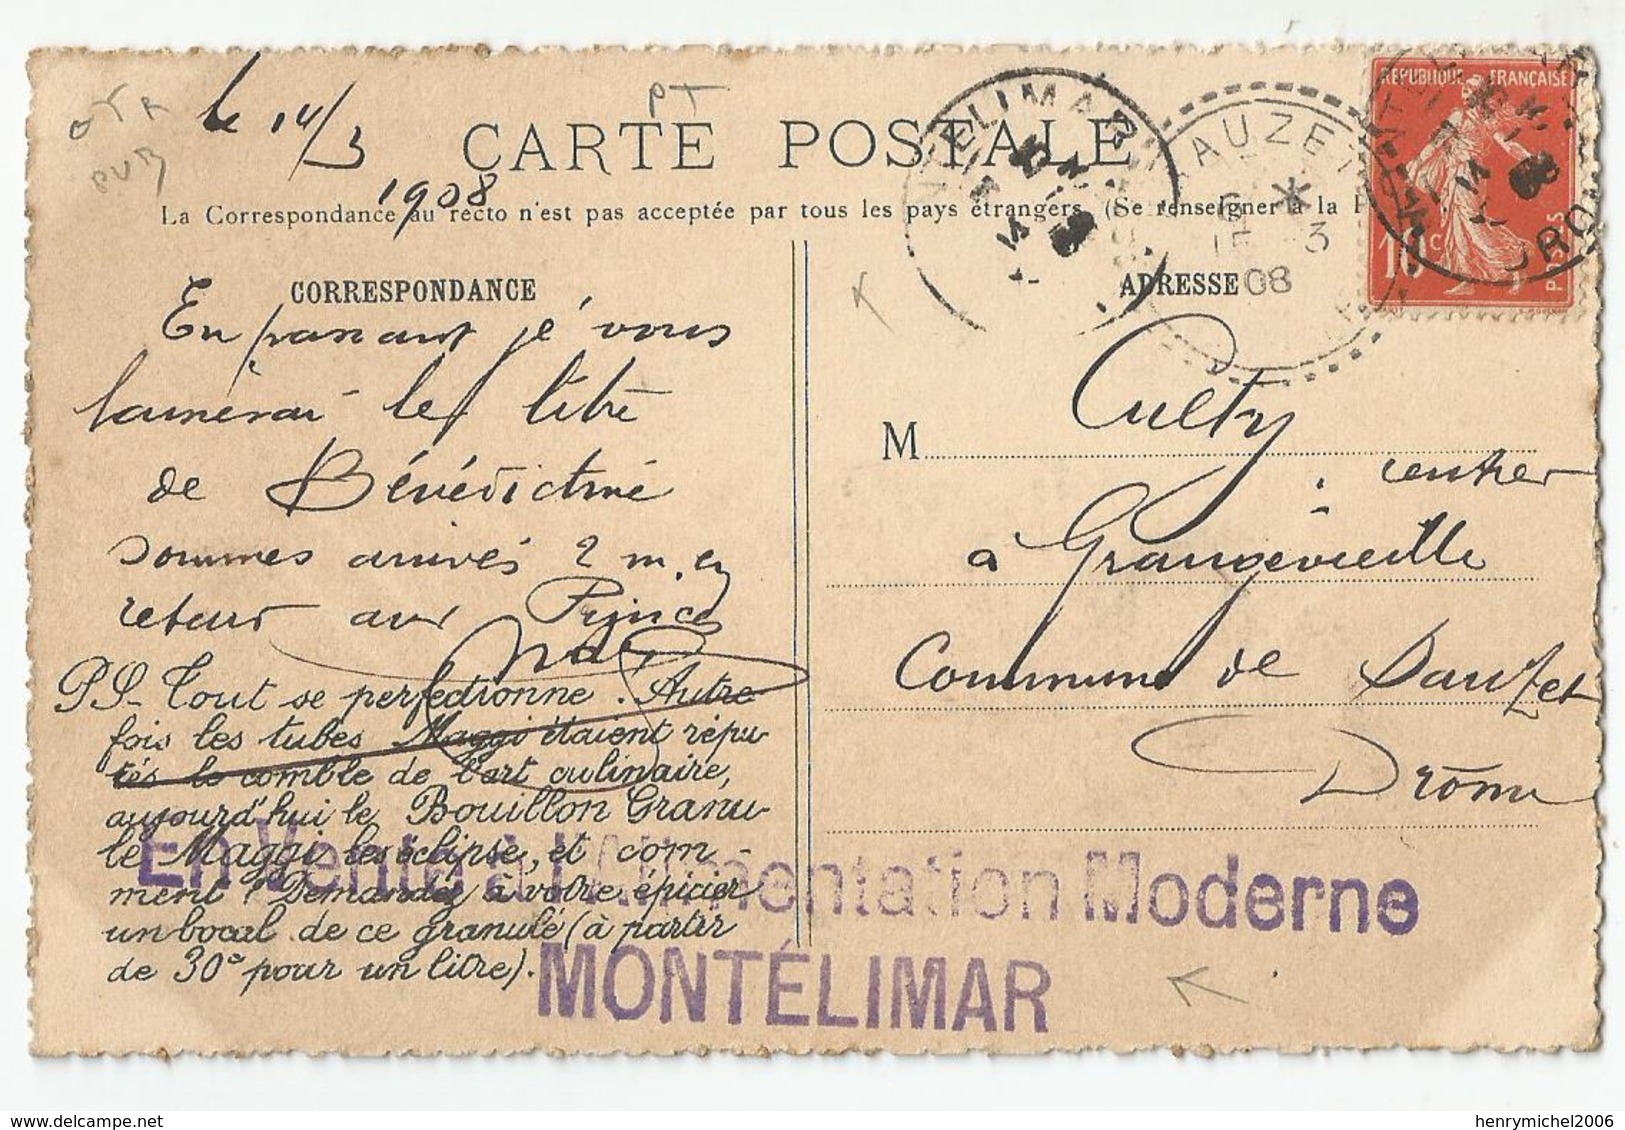 OTR
PUB
PT
le 14/3
1908
CARTE POSTALE
La Correspondance au recto n'est pas acceptée par tous les pays étrangers (Se renseigner à la P
RÉPUBLIQUE FRANÇAISE
10c
POSTES
MONTELIMAR
SAUZET
15 3
08
DROME
CORRESPONDANCE
En passant je vous
laisserai le litre
de Bénédictine
sommes arrivés 2 m. en
retour aux Princes
PS_ Tout se perfectionne. Autre
fois les tubes Maggi étaient répu-
tés le comble de l'art culinaire,
aujourd'hui le Bouillon Granu-
lé Maggi les éclipse, et com-
ment! Demandez à votre épicier
un bocal de ce granulé (à partir
de 30c pour un litre).
ADRESSE
M
rentier
à Grangevieille
Commune de Sauzet
Drôme
En Vente à l'Alimentation Moderne
MONTÉLIMAR
henrymichel2006